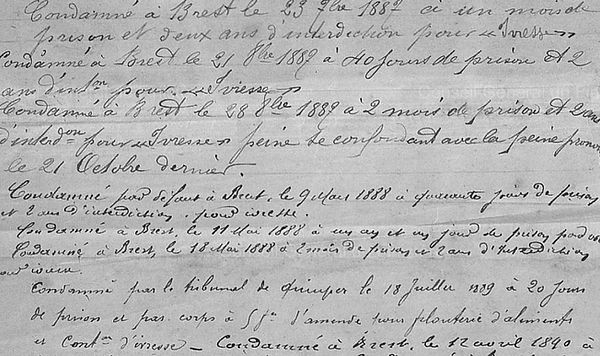 Condamné à Brest le 23 9bre 1887 à un mois de
prison et deux ans d'interdiction pour "Ivresse"
Condamné à Brest le 21 8bre 1889 à 40 jours de prison et 2
ans d'inton pour "Ivresse"
Condamné à Brest le 28 8bre 1889 à 2 mois de prison et 2 ans
d'interdon pour "Ivresse" peine se confondant avec la peine
le 21 Octobre dernier.
Condamné par défaut à Brest, le 9 Mars 1888 à quarante jours de prison
et 2 ans d'interdiction pour ivresse.
Condamné à Brest, le 11 Mai 1888 à un an et un jour de prison
Condamné à Brest, le 18 Mai 1888 à 2 mois de prison et 2 ans d'Interdiction
Condamné par le tribunal de Quimper le 18 Juillet 1889 à 20 jours
de prison et par corps à 5 f. d'amende pour filouterie d'aliments
et conton d'ivresse – Condamné à Brest, le 12 avril 1890 à